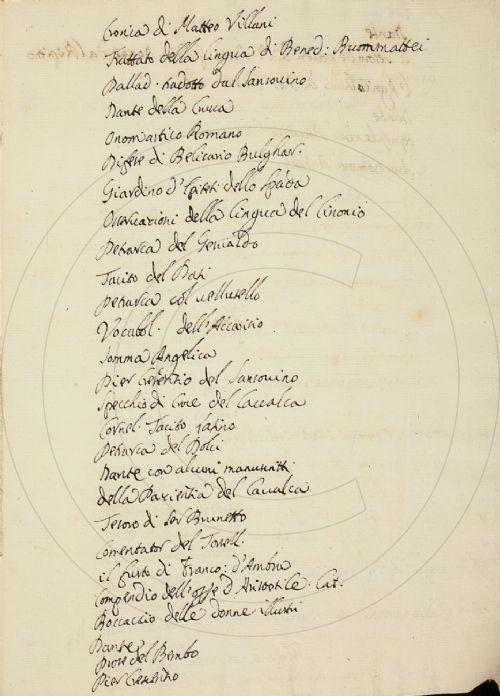 Cronia di Matteo Villani
Trattato della lingua di Bened: Buommattei
Pallad. tradotto dal Sansovino
Dante della Crusca
Onomastico Romano
Difese di Belisario Bulghar.
Giardino d'Epiteti dello Spada
Osservazioni della lingua del Cinonio
Petrarca del Gesualdo
Tacito del Dati
Petrarca col vellutello
Vocabol. dell'Accarisio
Somma Angelica
Pier Crescentio del Sansovino
Specchio di Croce del Cavalca
Cornel. Tacito latino
Petrarca del Dolci
Dante con alcuni manuscritti
della Pazientia del Cavalca
Tesoro di Ser Brunetto
Comentator del Torell.
il furto di Franco: d'Ambra
Compendio dell'opre d'Aristotile Lat.
Boccaccio delle donne illustri
Dante
Prose del Bembo
Pier Crescentino